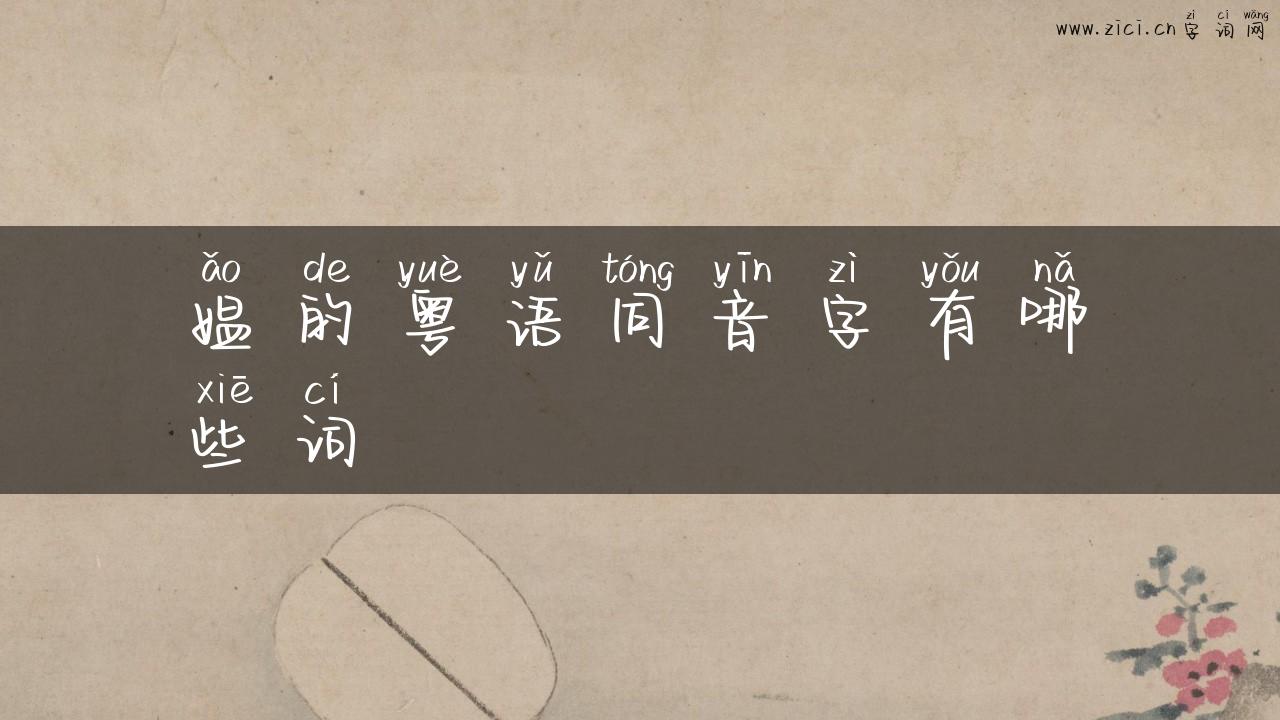 zì cí wǎng
www.zici.cn字词网
ǎo de yuè yǔ tóng yīn zì yǒu nǎ
媪的粤语同音字有哪
xiē cí
些词